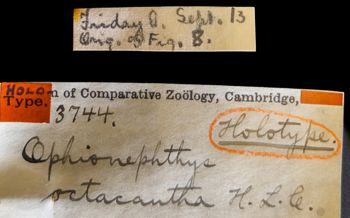 Friday A. Sept. 13
Orig. of Fig. 8.
HOLO-
Type.
n of Comparative Zoölogy, Cambridge,
3744.
Holotype.
Ophionephthys
octacantha H. L. C.